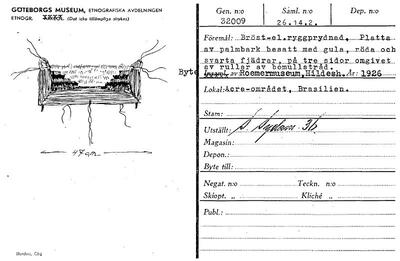 GÖTEBORGS MUSEUM, ETNOGRAFISKA AVDELNINGEN
ETNOGR. XXXX (Det icke tillämpliga strykes)
47 cm
Gen. n:o
32009
Saml. n:o
26.14.2.
Dep. n:o
Föremål: Bröst-el.ryggprydnad, Platta
av palmbark besatt med gula, röda och
svarta fjädrar, på tre sidor omgivet
av rullar av bomullstråd.
Byte av Roemermuseum, Hildesh. År: 1926
Lokal: Acre-området, Brasilien.
Stam:
Utställt: 36.
Magasin:
Depon.:
Byte till:
Negat. n:o
Teckn. n:o
Skiopt. „
Kliché „
Publ.: